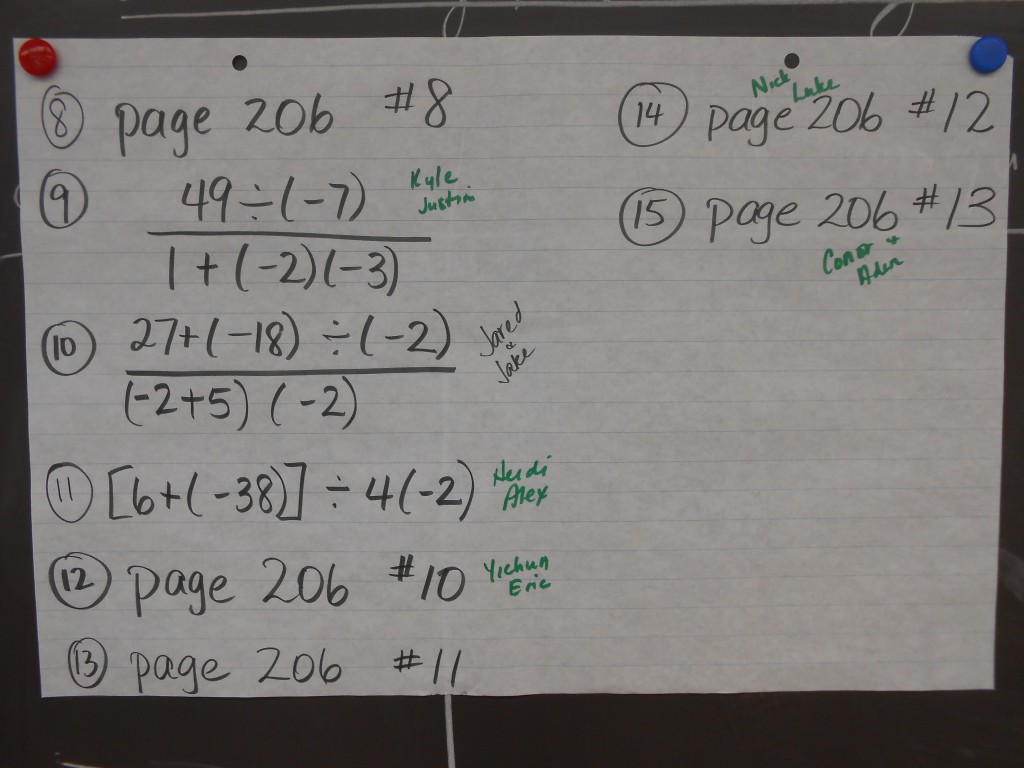 8 page 206 #8
9 49÷(-7) Kyle
Justin
1+(-2)(-3)
10 27+(-18)÷(-2) Jared
+
Jake
(-2+5)(-2)
11 [6+(-38)]÷4(-2) Heidi
Alex
12 page 206 #10 Yichun
Eric
13 page 206 #11
Nick
Luke
14 page 206 #12
15 page 206 #13
Conor +
Aden